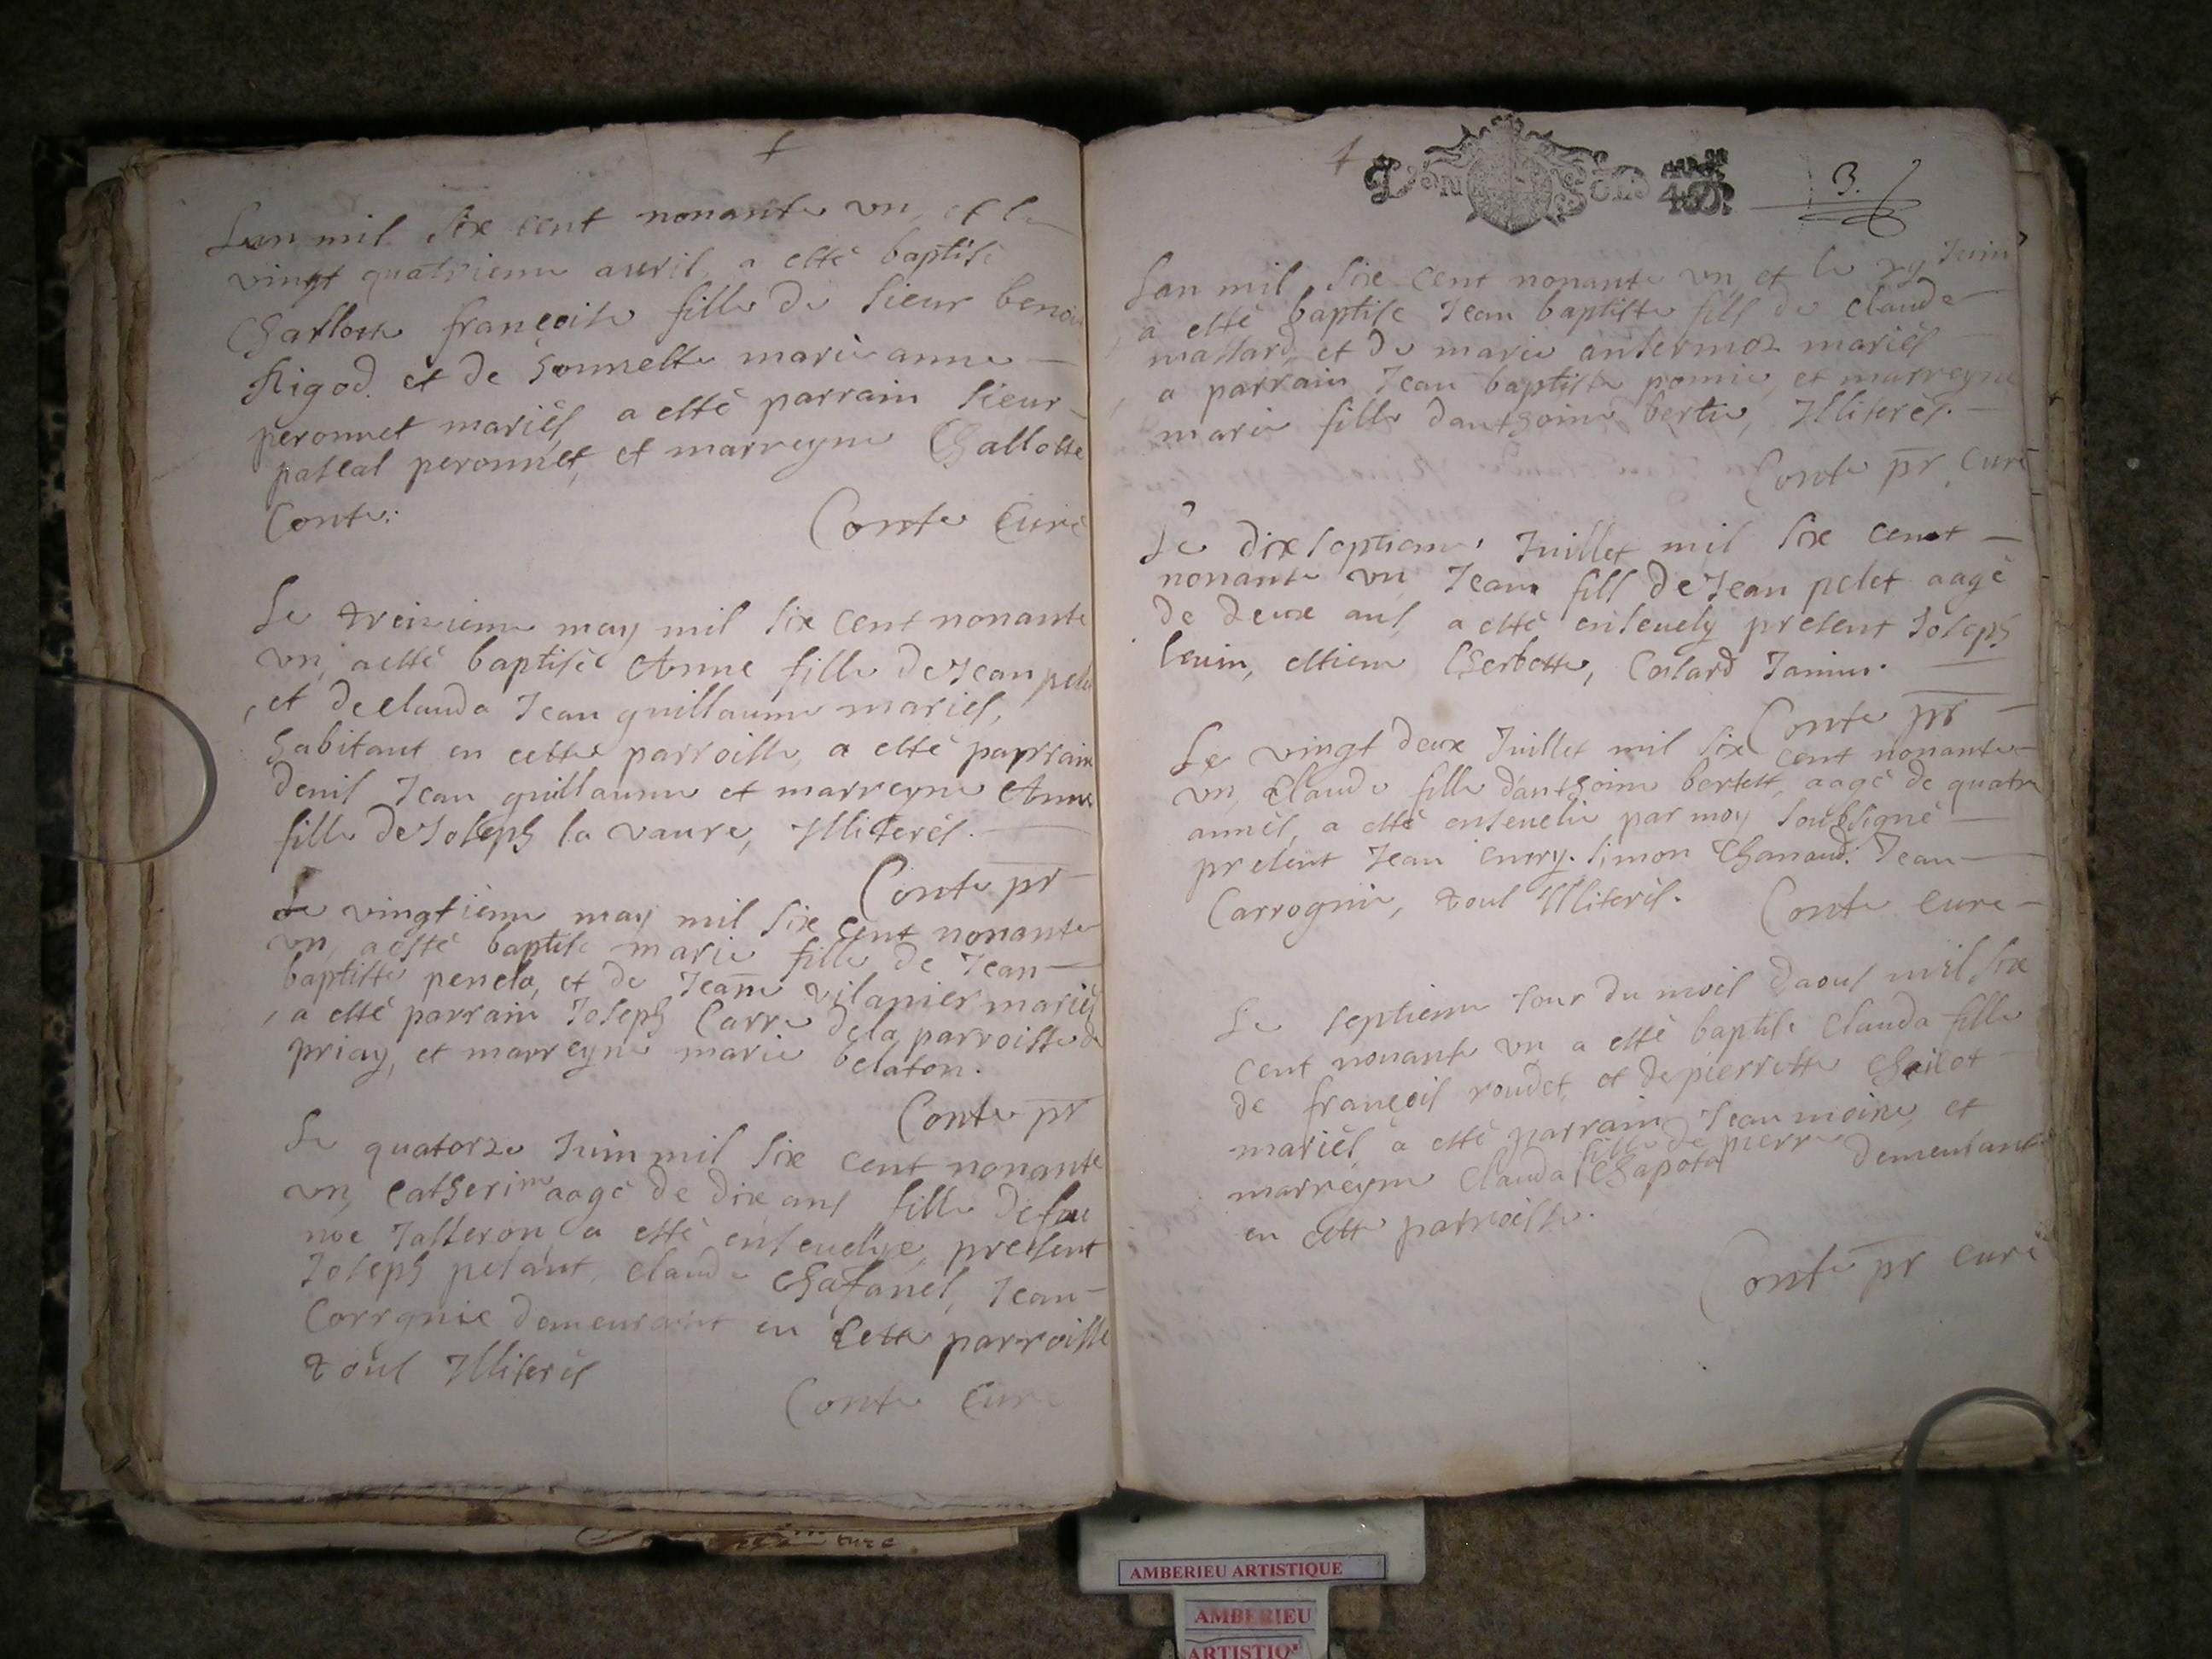 Lan mil six cent nonante vn, et le
vingt quatrieme auril a esté baptisé
Charlotte françoise fille de sieur benoit
Rigod et de honnette marie anne
peronnet mariés, a esté parrain sieur
pascal peronnet, et marreyne Challotte
Conte.
Conte Curé
Le treizieme may mil six cent nonante
vn, a esté baptiséé Anne fille de Jean pelet
et de clauda Jean guillaume mariés,
habitant en cette parroisse, a esté parrain
denis Jean guillaume et marreyne Anne
fille de Joseph la vaure, Illiterés.
Conte pr
Le vingtieme may mil six cent nonante
vn, a esté baptisé marie fille de Jean
baptiste penela, et de Jeane vilanier mariés
a esté parrain Joseph Carre de la parroisse de
priay, et marreyne marie belaton.
Conte pr
Le quatorze Juin mil six cent nonante
vn, catherine aagé de dix ans fille de feu
noe Jasseron a esté enseuelye, present
Joseph pelant, claude Chafanel, Jean
Corrgnie demeurant en Cette parroisse
tous Illiterés
Conte Curé
LYON SOLS 4 DE
3.
Lan mil six cent nonante vn, et le Juin
a esté baptisé Jean baptiste fils de claude
massard, et de marie antermoz mariés
a parrain Jean baptiste pomie, et marreyne
marie fille danthoine bertie, Illiterés.
Conte pr Curé
Le dix septieme Juillet mil six cent
nonante vn, Jean fils de Jean pelet aagé
de deux ans, a esté enseuely present Joseph
leuin, estiene Cherbette, Colard Janin.
Conte pr
Le vingt deux Juillet mil six cent nonante
vn, Claude fille danthoine bertet, aagé de quatre
annés, a esté enseuelie par moy soubsigné
present Jean emery. simon Chanaud. Jean
Carrognie, tous Illiterés. Conte Curé
Le septieme Jour du mois daous mil six
cent nonante vn a esté baptisé Clauda fille
de françois roudet, et de pierrette
mariés a esté parrain Jean moine, et
fille de pierre
marreyne Clauda Chapota demeurant
en cette parroisse.
Conte pr curé
curé
AMBERIEU ARTISTIQUE
AMBERIEU
ARTISTIQ